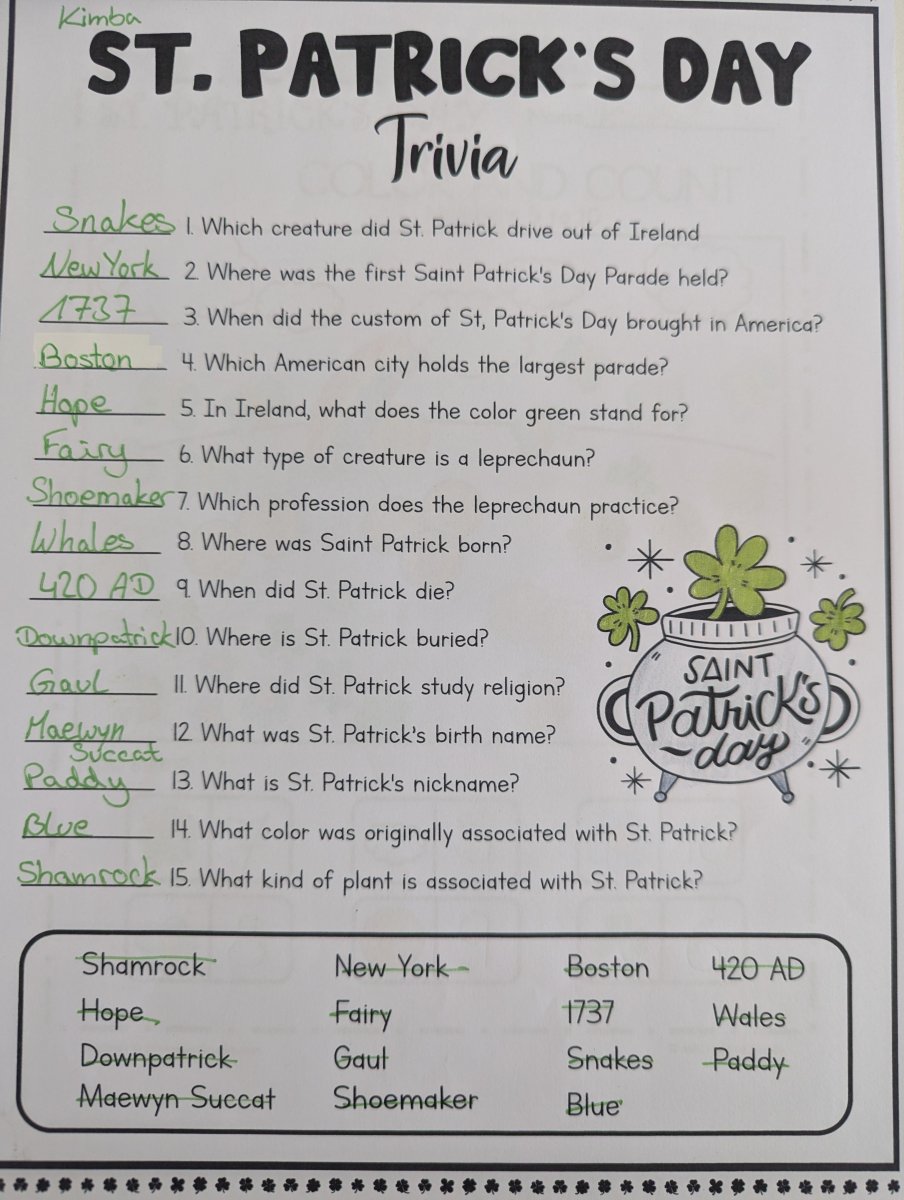 Kimba
ST. PATRICK'S DAY
Trivia
Snakes 1. Which creature did St. Patrick drive out of Ireland
New York 2. Where was the first Saint Patrick's Day Parade held?
1737 3. When did the custom of St, Patrick's Day brought in America?
Boston 4. Which American city holds the largest parade?
Hope 5. In Ireland, what does the color green stand for?
Fairy 6. What type of creature is a leprechaun?
Shoemaker 7. Which profession does the leprechaun practice?
Whales 8. Where was Saint Patrick born?
420 AD 9. When did St. Patrick die?
Downpatrick 10. Where is St. Patrick buried?
Gaul 11. Where did St. Patrick study religion?
Maewyn 12. What was St. Patrick's birth name?
Succat
Paddy 13. What is St. Patrick's nickname?
Blue 14. What color was originally associated with St. Patrick?
Shamrock 15. What kind of plant is associated with St. Patrick?
SAINT
Patrick's
day
Shamrock New York Boston 420 AD
Hope Fairy 1737 Wales
Downpatrick Gaul Snakes Paddy
Maewyn Succat Shoemaker Blue